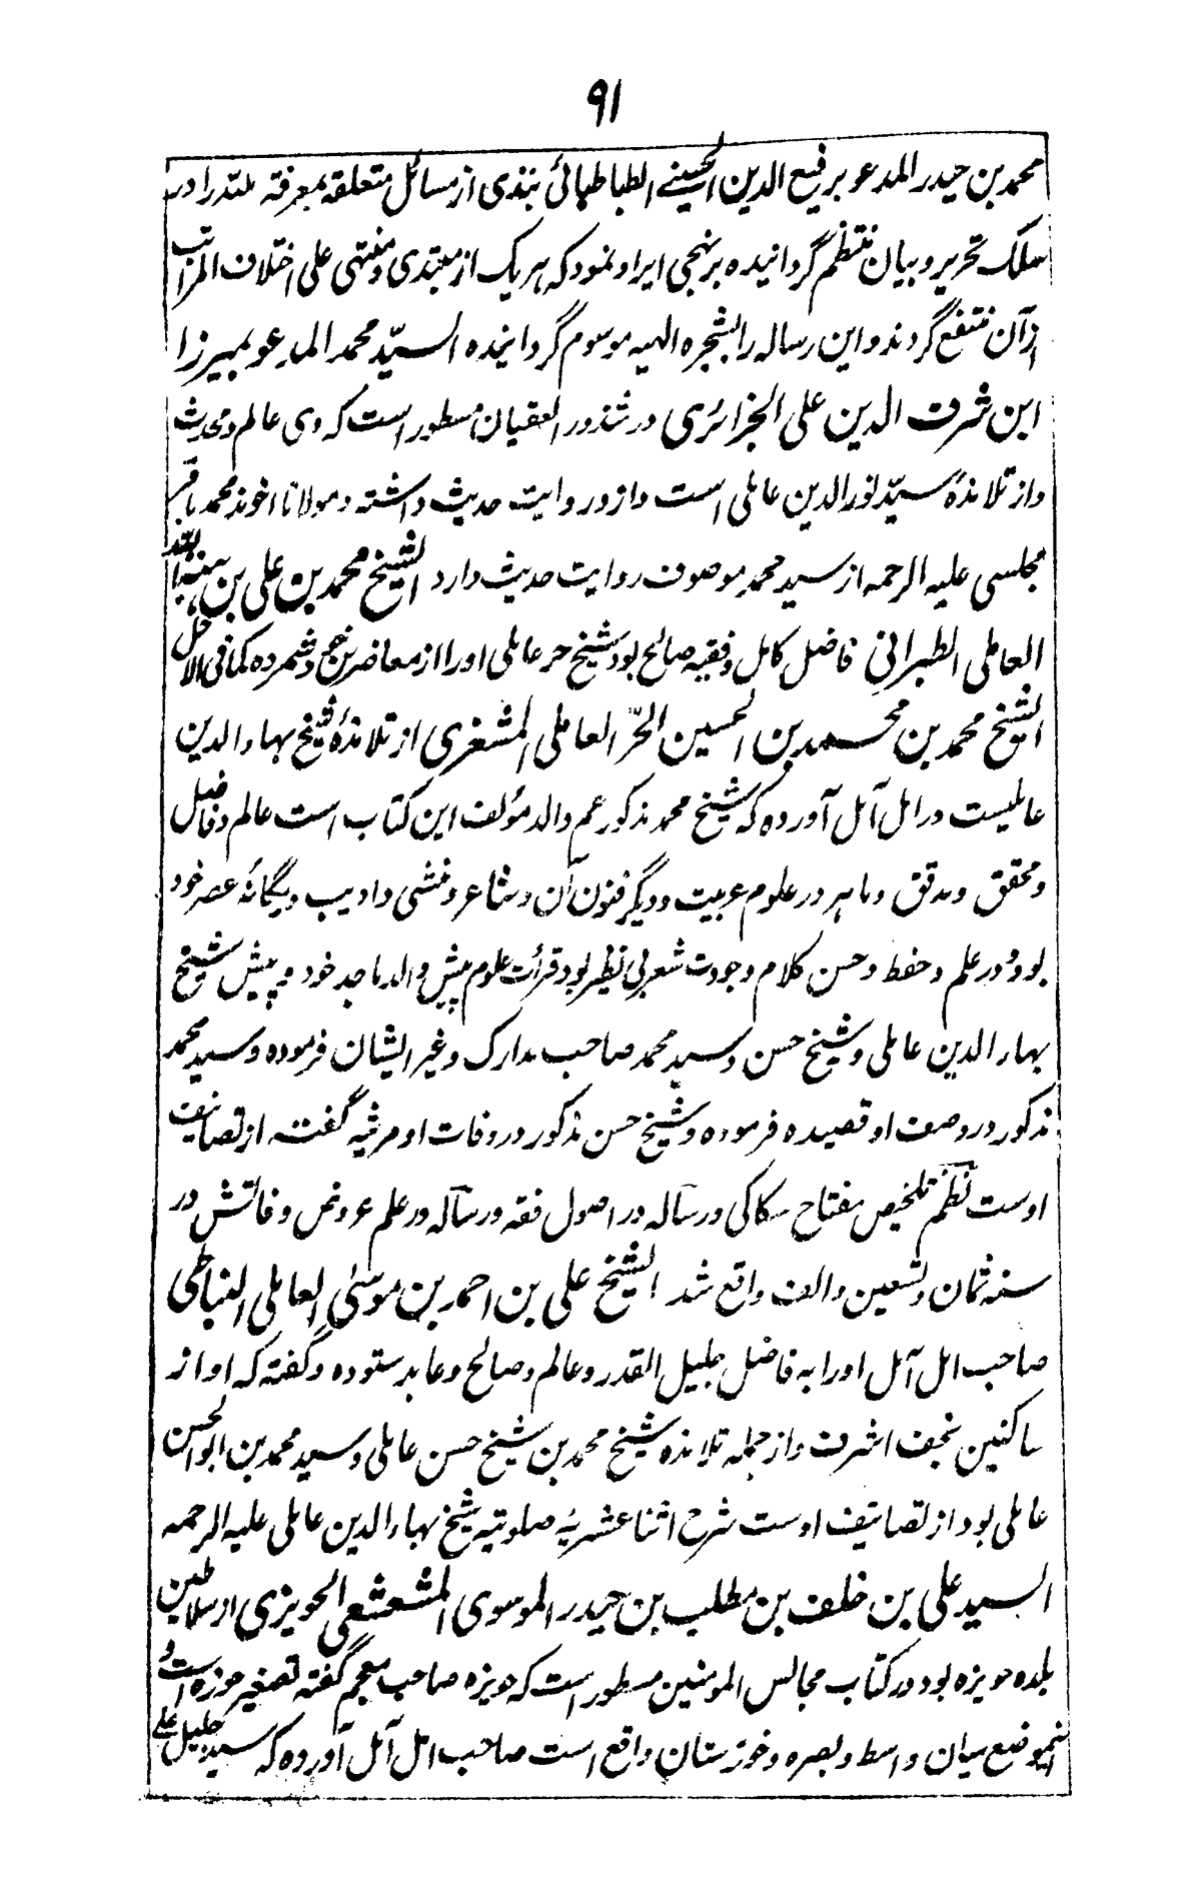 ۹۱
محمد بن حیدر المدعو برفیع الدین الحسینے الطباطبائی نبذی از مسائل متعلقه بمعرفة الله را در
سلک تحریر و بیان منتظم گردانیده بر نهجی ایراد نمود که هر یک از مبتدی و منتهی علی اختلاف المراتب
از آن منتفع گردند و این رساله را بشجره الهیه موسوم گردانیده السیّد محمد المدعو بمیرزا
ابن شرف الدین علی الجزائری در شذور العقیان مسطور است که وی عالم و محدث
و از تلامذهٔ سیّد نور الدین عاملی است و ازو روایت حدیث داشته و مولانا اخوند محمد باقر
مجلسی علیه الرحمه از سید محمد موصوف روایت حدیث دارد الشیخ محمد بن علی بن
العاملی الطبرانی فاضل کامل و فقیه صالح بود شیخ حر عاملی او را از معاصرین خود شمرده کما فی الامل
الشیخ محمد بن محمد بن الحسین الحرّ العاملی المشغری از تلامذهٔ شیخ بهاء الدین
عاملیست در امل آمل آورده که شیخ محمد مذکور عم والد مؤلف این کتاب است عالم و فاضل
و محقق و مدقق و ماهر در علوم عربیت و دیگر فنون آن و شاعر و منشی و ادیب و یگانهٔ عصر خود
بود و در علم و حفظ و حسن کلام و جودت شعر بی نظیر بود قرأت علوم پیش والد ماجد خود و پیش شیخ
بهاء الدین عاملی و شیخ حسن و سید محمد صاحب مدارک و غیر ایشان فرموده و سید محمد
مذکور در وصف او قصیده فرموده و شیخ حسن مذکور در وفات او مرثیه گفته از تصانیف
اوست نظم تلخیص مفتاح سکاکی و رساله در اصول فقه و رساله در علم عروض وفاتش در
سنه ثمان و تسعین و الف واقع شد الشیخ علی بن احمد بن موسیٰ العاملی النباطی
صاحب امل آمل او را به فاضل جلیل القدر و عالم و صالح و عابد ستوده و گفته که او از
ساکنین نجف اشرف و از جمله تلامذه شیخ محمد بن شیخ حسن عاملی و سید محمد بن ابو الحسن
عاملی بود از تصانیف اوست شرح اثنا عشریهٔ صلوتیه شیخ بهاء الدین عاملی علیه الرحمه
السید علی بن خلف بن مطلب بن حیدر الموسوی المشعشعی الحویزی از سلاطین
بلده حویزه بود در کتاب مجالس المومنین مسطور است که حویزه صاحب معجم گفته تصغیر حوزه است و
اینموضع میان واسط و بصره و خوزستان واقع است صاحب امل آمل آورده که سید جلیل علی